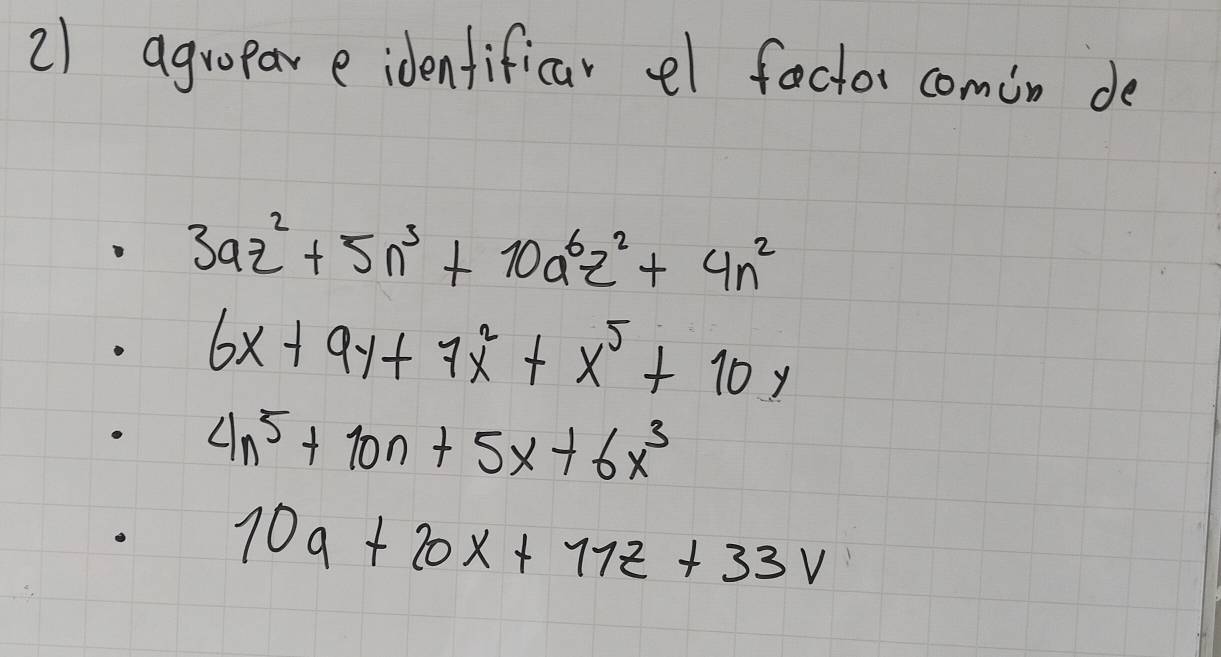 2) agrupar e identificar el factor común de
• 3az² + 5n³ + 10a⁶z² + 4n²
• 6x + 9y + 7x² + x⁵ + 10y
• 4n⁵ + 10n + 5x + 6x³
• 10a + 20x + 11z + 33v